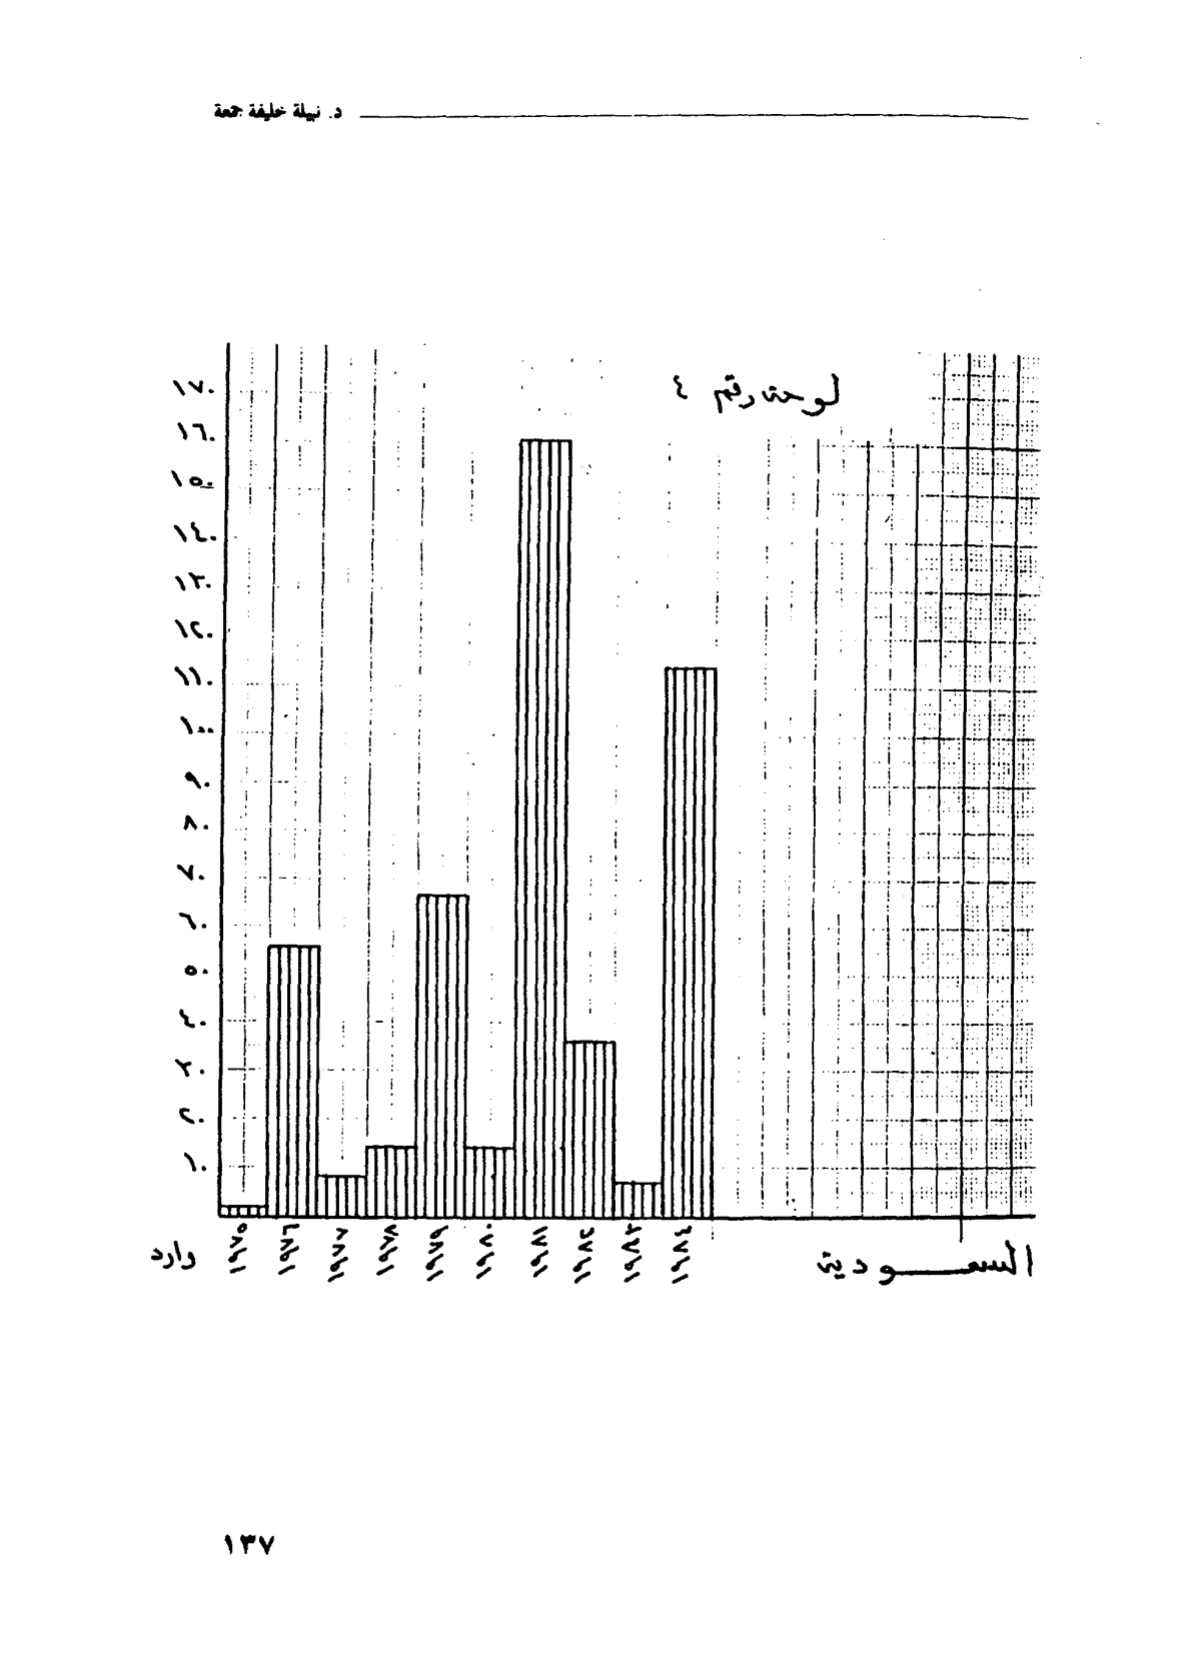 د. نبيلة خليفة جمعة
لوحة رقم ٤
١٧٠
١٦٠
١٥٠
١٤٠
١٣٠
١٢٠
١١٠
١٠٠
٩٠
٨٠
٧٠
٦٠
٥٠
٤٠
٣٠
٢٠
١٠
وارد
١٩٧٥
١٩٧٦
١٩٧٧
١٩٧٨
١٩٧٩
١٩٨٠
١٩٨١
١٩٨٢
١٩٨٣
١٩٨٤
السعودية
١٣٧